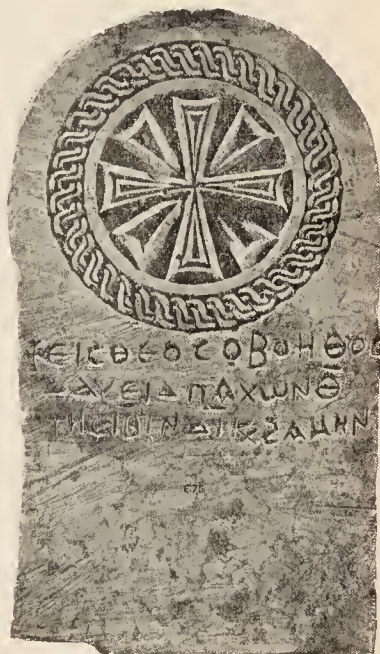 ΕΙϹΘΕΟϹΟΒΟΗΘΟϹ
ΔΑΥΕΙΔΠΑΧΩΝΘ
ΤΗϹΙΘΙΝΔΙΚϨΑΜΗΝ